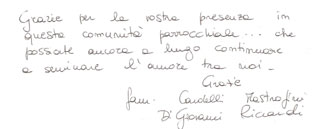 Grazie per la vostra presenza in
questa comunità parrocchiale... che
possiate ancora a lungo continuare
a seminare l'amore tra noi.
Grazie
fam. Cardelli Mastrofini
Di Giovanni Ricciardi